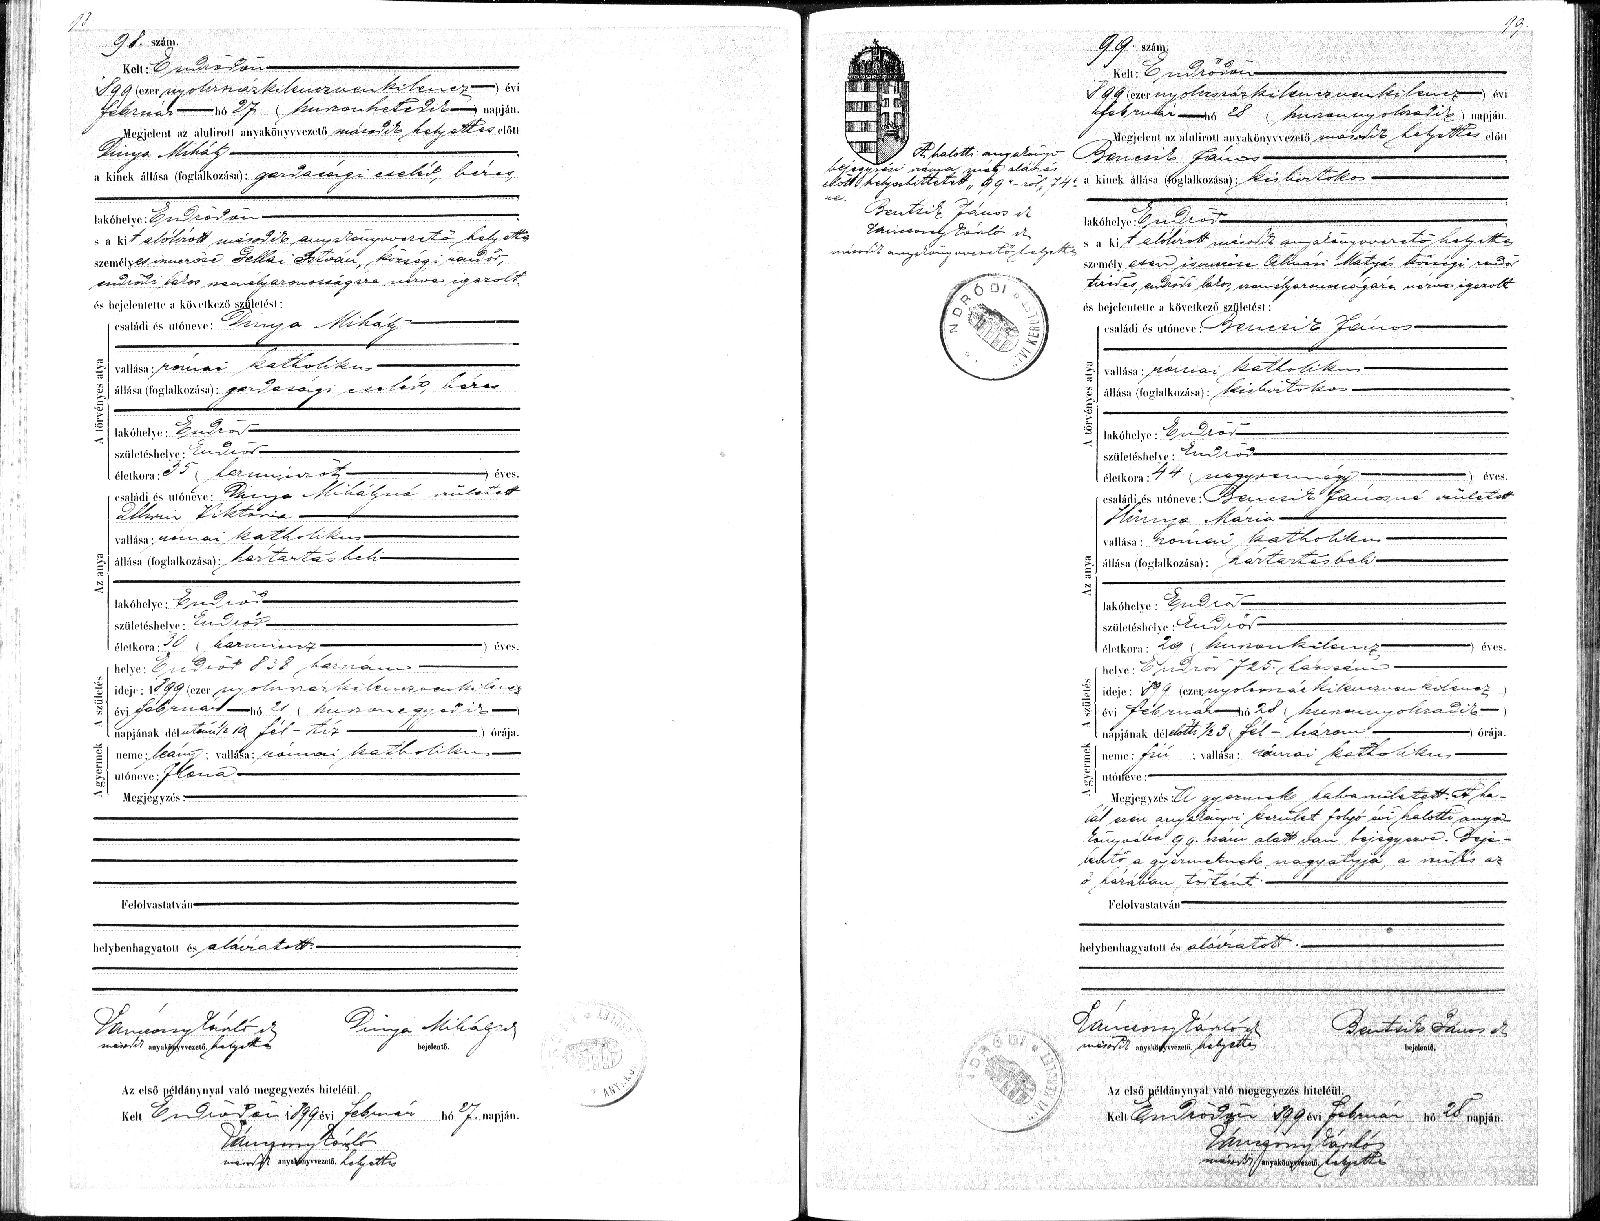 93
98. szám.
Kelt: Endrődön
1899 (ezer nyolcszázkilenczvenkilencz) évi
február hó 27 (huszonhetedik) napján.
Megjelent az alulirott anyakönyvvezető második helyettes előtt
Dinya Mihály
a kinek állása (foglalkozása): gazdasági cseléd, béres,
lakóhelye: Endrődön
s a kit alólírott második anyakönyvvezető helyettes
személyes István, községi rendőr,
endrődi lakos személyazonosságára nézve igazolt
és bejelentette a következő születést:
A törvényes atya
családi és utóneve: Dinya Mihály
vallása: római katholikus
állása (foglalkozása): gazdasági cseléd, béres
lakóhelye: Endrőd
születéshelye: Endrőd
életkora: 35 (harminczöt) éves.
Az anya
családi és utóneve: Dinya Mihályné született
Viktória
vallása: római katholikus
állása (foglalkozása): háztartásbeli
lakóhelye: Endrőd
születéshelye: Endrőd
életkora: 30 (harmincz) éves.
A születés
helye: Endrőd 838 házszám
ideje: 1899 (ezer nyolcszázkilenczvenkilencz
évi február hó 21 (huszonegyedik)
napjának délutáni ½ 10 (fél-tíz) órája.
A gyermek
neme: leány; vallása: római katholikus
utóneve: Ilona
Megjegyzés:
Felolvastatván
helybenhagyatott és aláiratott.
Károly
második anyakönyvvezető, helyettes
Dinya Mihály
bejelentő.
Az első példánynyal való megegyezés hiteléül.
Kelt Endrődön 1899 évi február hó 27. napján.
Károly
második anyakönyvvezető, helyettes
99.
99. szám.
Kelt: Endrődön
1899 (ezer nyolcszázkilenczvenkilencz) évi
február hó 28 (huszonnyolczadik) napján.
Megjelent az alulirott anyakönyvvezető második helyettes előtt
Bencsik János
a kinek állása (foglalkozása): kisbirtokos
lakóhelye: Endrőd
s a kit alólírott második anyakönyvvezető helyettes
személyesen Mátyás községi rendőr
tizedes, endrődi lakos, személyazonosságára nézve igazolt
és bejelentette a következő születést:
A törvényes atya
családi és utóneve: Bencsik János
vallása: római katholikus
állása (foglalkozása): kisbirtokos
lakóhelye: Endrőd
születéshelye: Endrőd
életkora: 44 (negyvennégy) éves.
Az anya
családi és utóneve: Bencsik Jánosné született
Mária
vallása: római katholikus
állása (foglalkozása): háztartásbeli
lakóhelye: Endrőd
születéshelye: Endrőd
életkora: 29 (huszonkilencz) éves.
A születés
helye: Endrőd 725. házszám
ideje: 1899 (ezer nyolcszázkilenczvenkilencz)
évi február hó 28 (huszonnyolczadik)
napjának délelőtti ½ 3 (fél-három) órája.
A gyermek
neme: fiú; vallása: római katholikus
utóneve:
Megjegyzés: A gyermek halvaszületett. A ha-
lál ezen anyakönyvi kerület folyó évi halotti anya-
könyvében 99. szám alatt van bejegyezve. Beje-
lentő a gyermeknek nagyatyja, a szülés az
ő házában történt.
Felolvastatván
helybenhagyatott és aláiratott.
Károly
második anyakönyvvezető, helyettes
Bentsik János
bejelentő.
Az első példánynyal való megegyezés hiteléül.
Kelt Endrődön 1899 évi február hó 28 napján.
Károly
második anyakönyvvezető, helyettes
A halotti anyakönyvi
bejegyzési száma, még aláírás
előtt helyesbíttetett „99"-ről, 74-
re.
Bentsik János
Károly
második anyakönyvvezető helyettes